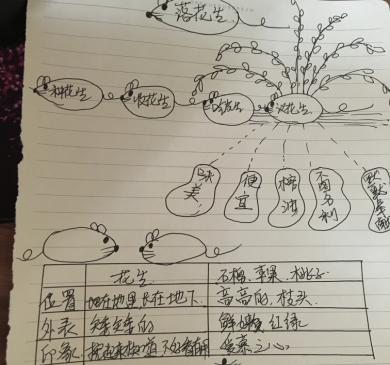 落花生
种花生
收花生
吃花生
议花生
味美
便宜
榨油
不图名利
默默奉献
花生
石榴、苹果、桃子
位置
埋在地里 长在地下
高高的 枝头
外表
矮矮的
鲜嫩 红绿
印象
爱慕之心